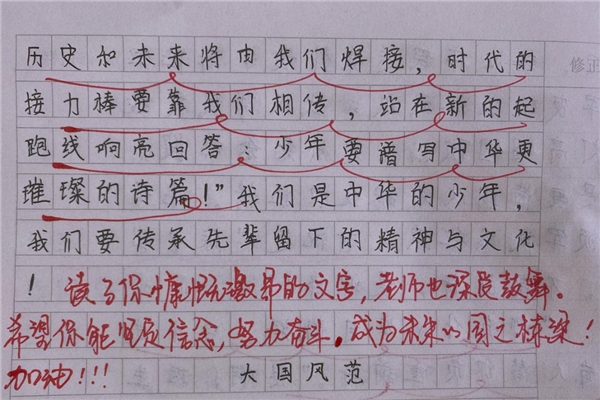 历史和未来将由我们焊接，时代的
接力棒要靠我们相传，站在新的起
跑线响亮回答：少年要谱写中华更
璀璨的诗篇！”我们是中华的少年，
我们要传承先辈留下的精神与文化
！读了你慷慨激昂的文字，老师也深受鼓舞。
希望你能坚定信念，努力奋斗。成为未来的国之栋梁！
加油！！！
大国风范